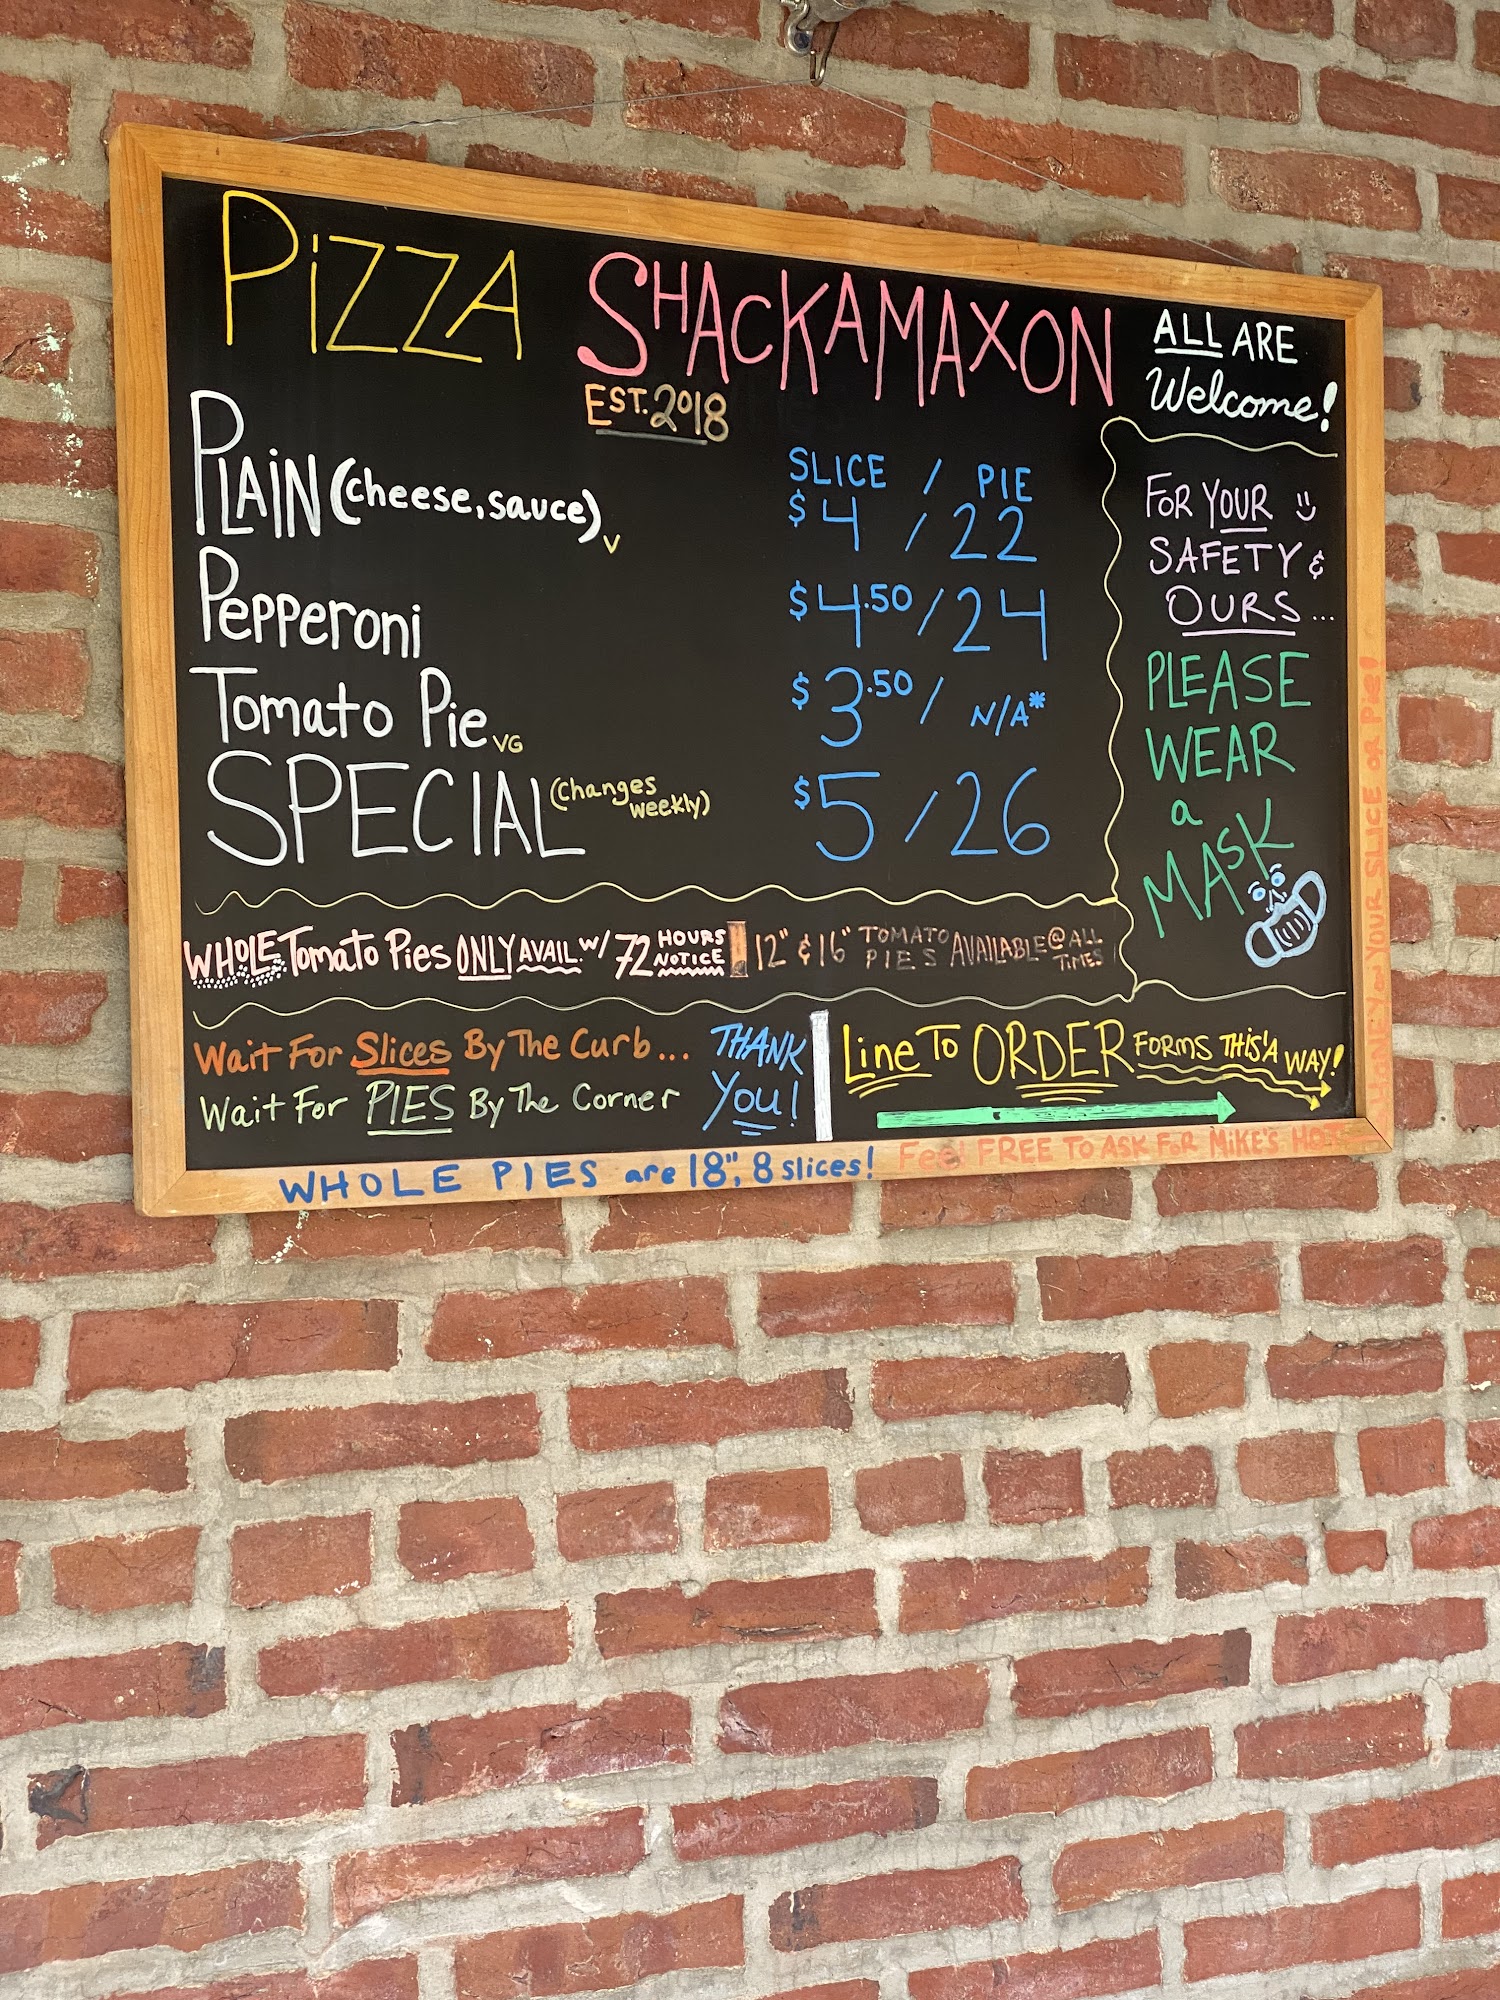 PiZZA SHACKAMAXON
EST. 2018
ALL ARE
Welcome!
SLICE / PIE
PLAiN (cheese, sauce) V $4 / 22
Pepperoni $4.50 / 24
Tomato Pie VG $3.50 / N/A*
SPECIAL (changes weekly) $5 / 26
FOR YOUR
SAFETY &
OURS...
PLEASE
WEAR
a
MASK
WHOLE Tomato Pies ONLY AVAIL. w/ 72 HOURS NOTICE 12" & 16" TOMATO PIES AVAILABLE @ ALL TiMES
Wait For Slices By The Curb...
Wait For PIES By The Corner
THANK
You!
Line To ORDER FORMS THIS'A WAY!
WHOLE PIES are 18", 8 slices!
Feel FREE TO ASK FOR MiKE'S HOT
HONEY ON YOUR SLICE OR PiE!